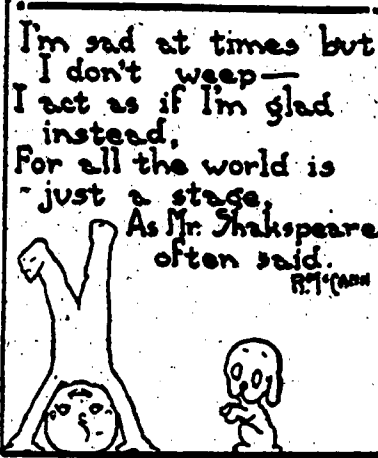 I'm sad at times but
I don't weep—
I act as if I'm glad
instead,
For all the world is
just a stage,
As Mr. Shakspeare
often said.
R. McCann